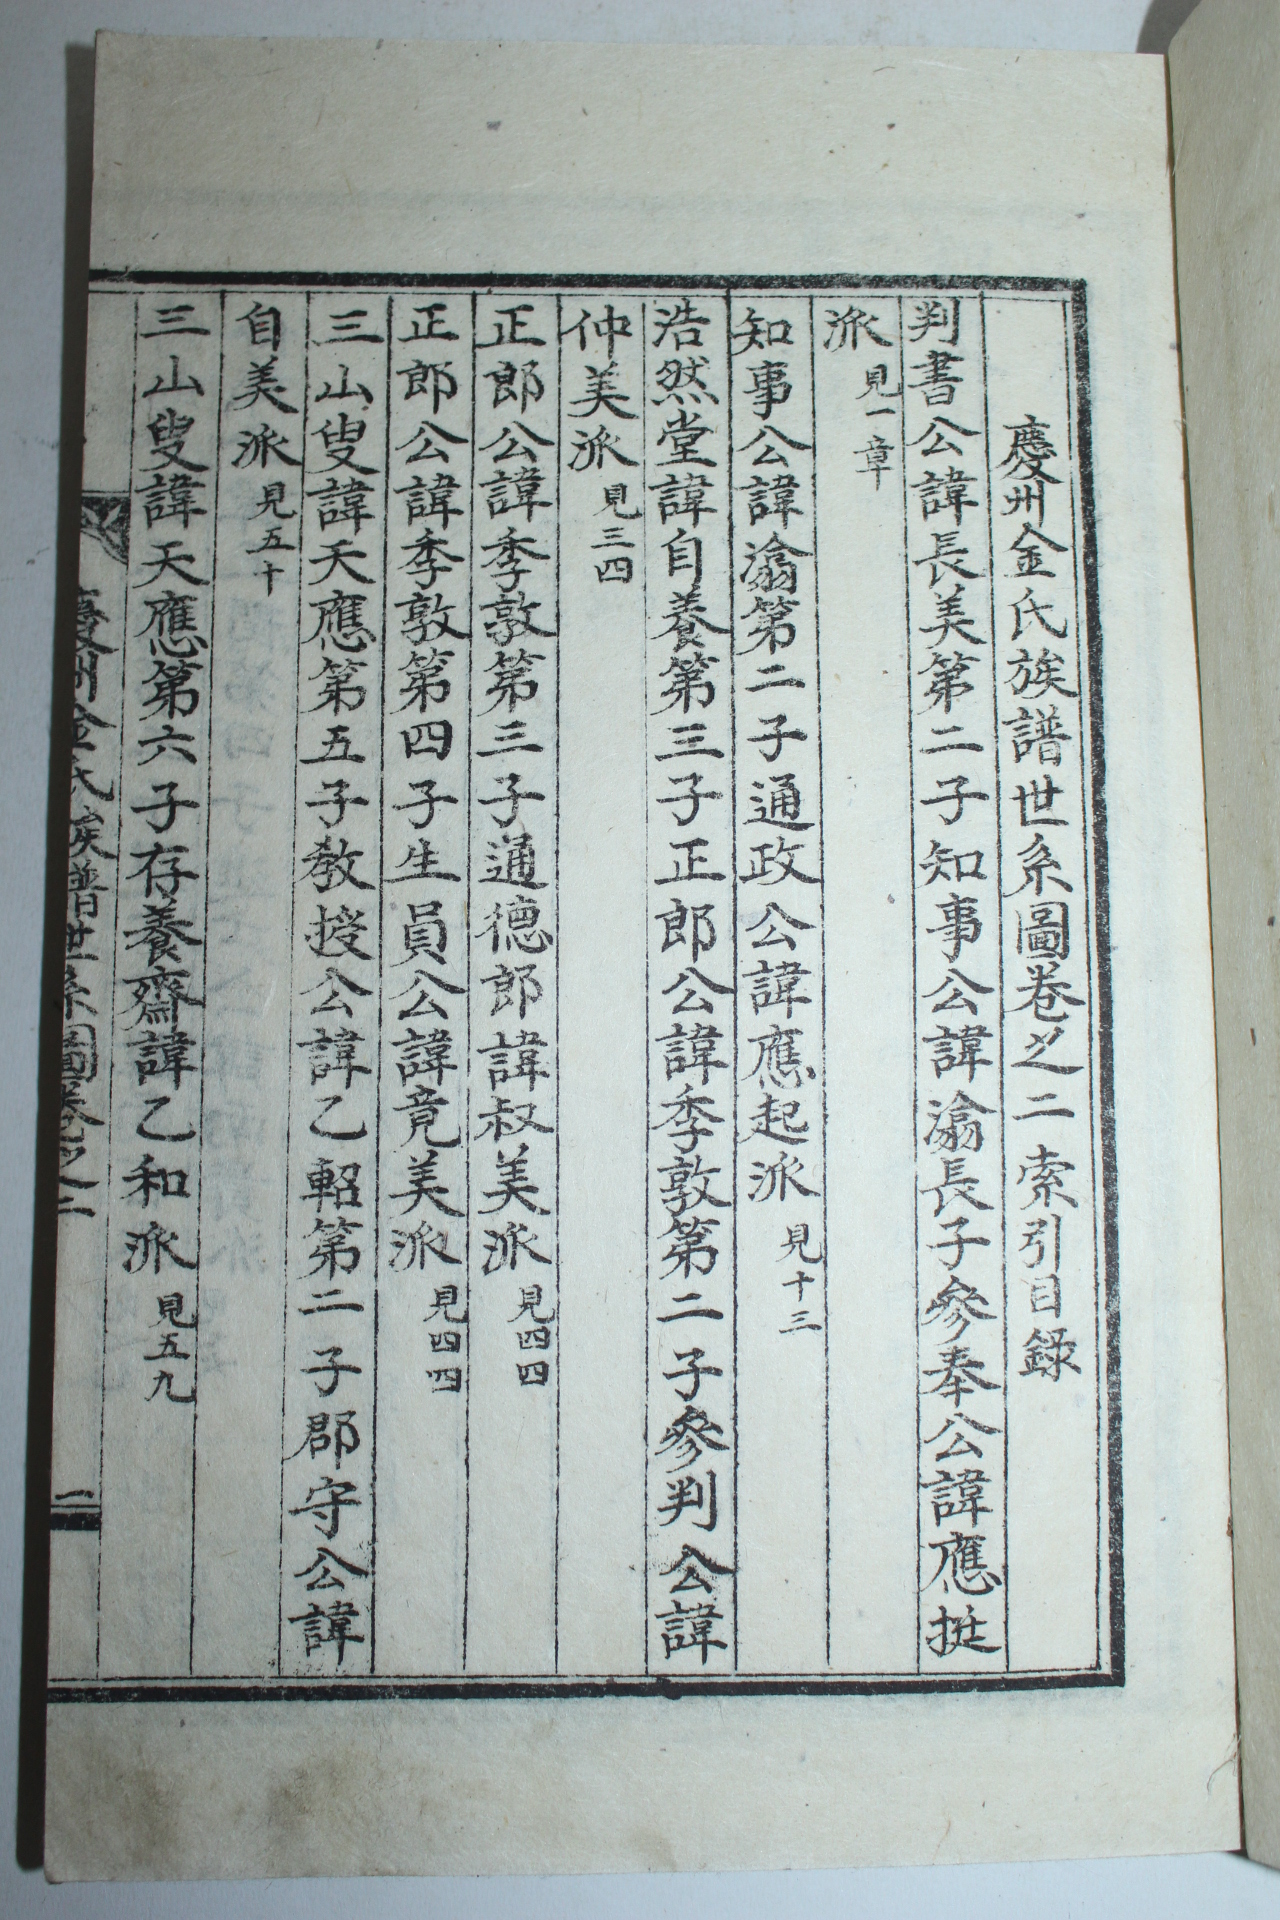 慶州金氏族譜世系圖卷之二索引目錄
判書公諱長美第二子知事公諱滃長子參奉公諱應挺
派見一章
知事公諱滃第二子通政公諱應起派見十三
浩然堂諱自養第三子正郎公諱季敦第二子參判公諱
仲美派見三四
正郎公諱季敦第三子通德郎諱叔美派見四四
正郎公諱季敦第四子生員公諱竟美派見四四
三山叟諱天應第五子教授公諱乙軺第二子郡守公諱
自美派見五十
三山叟諱天應第六子存養齋諱乙和派見五九
慶州金氏族譜世系圖卷之二
二